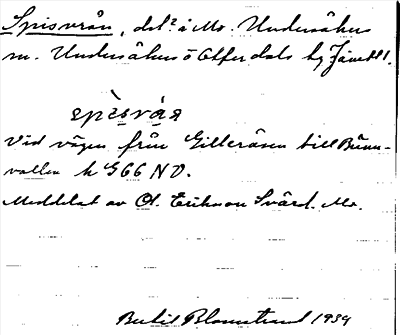 Spisvrån, del² i Mo. Undersåkers
sn. Undersåkers o Offerdals tg Jämtl.
spìsvrá̱
Vid vägen från Gilleråsen till Bunn-
vallen k 566 NO.
Meddelat av Ol. Erikson Svärd. Mo.
Bertil Blomstrand 1934